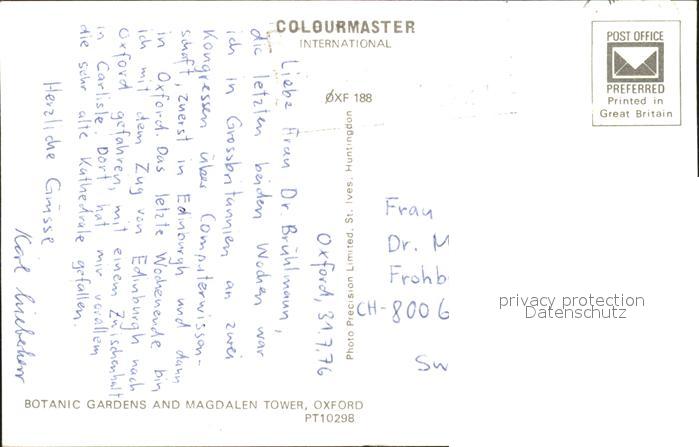 COLOURMASTER
INTERNATIONAL
ØXF 188
POST OFFICE
PREFERRED
Printed in
Great Britain
Oxford, 31.7.76
Liebe Frau Dr. Brühlmann,
die letzten beiden Wochen war
ich in Grossbritannien an zwei
Kongressen über Computerwissen-
schaft, zuerst in Edinburgh und dann
in Oxford. Das letzte Wochenende bin
ich mit dem Zug von Edinburgh nach
Oxford gefahren, mit einem Zwischenhalt
in Carlisle. Dort hat mir vorallem
die sehr alte Kathedrale gefallen.
Herzliche Grüsse
Karl
Photo Precision Limited, St. Ives, Huntingdon
Frau
Dr. M
Frohb
CH-8006
Sw
privacy protection
Datenschutz
BOTANIC GARDENS AND MAGDALEN TOWER, OXFORD
PT10298